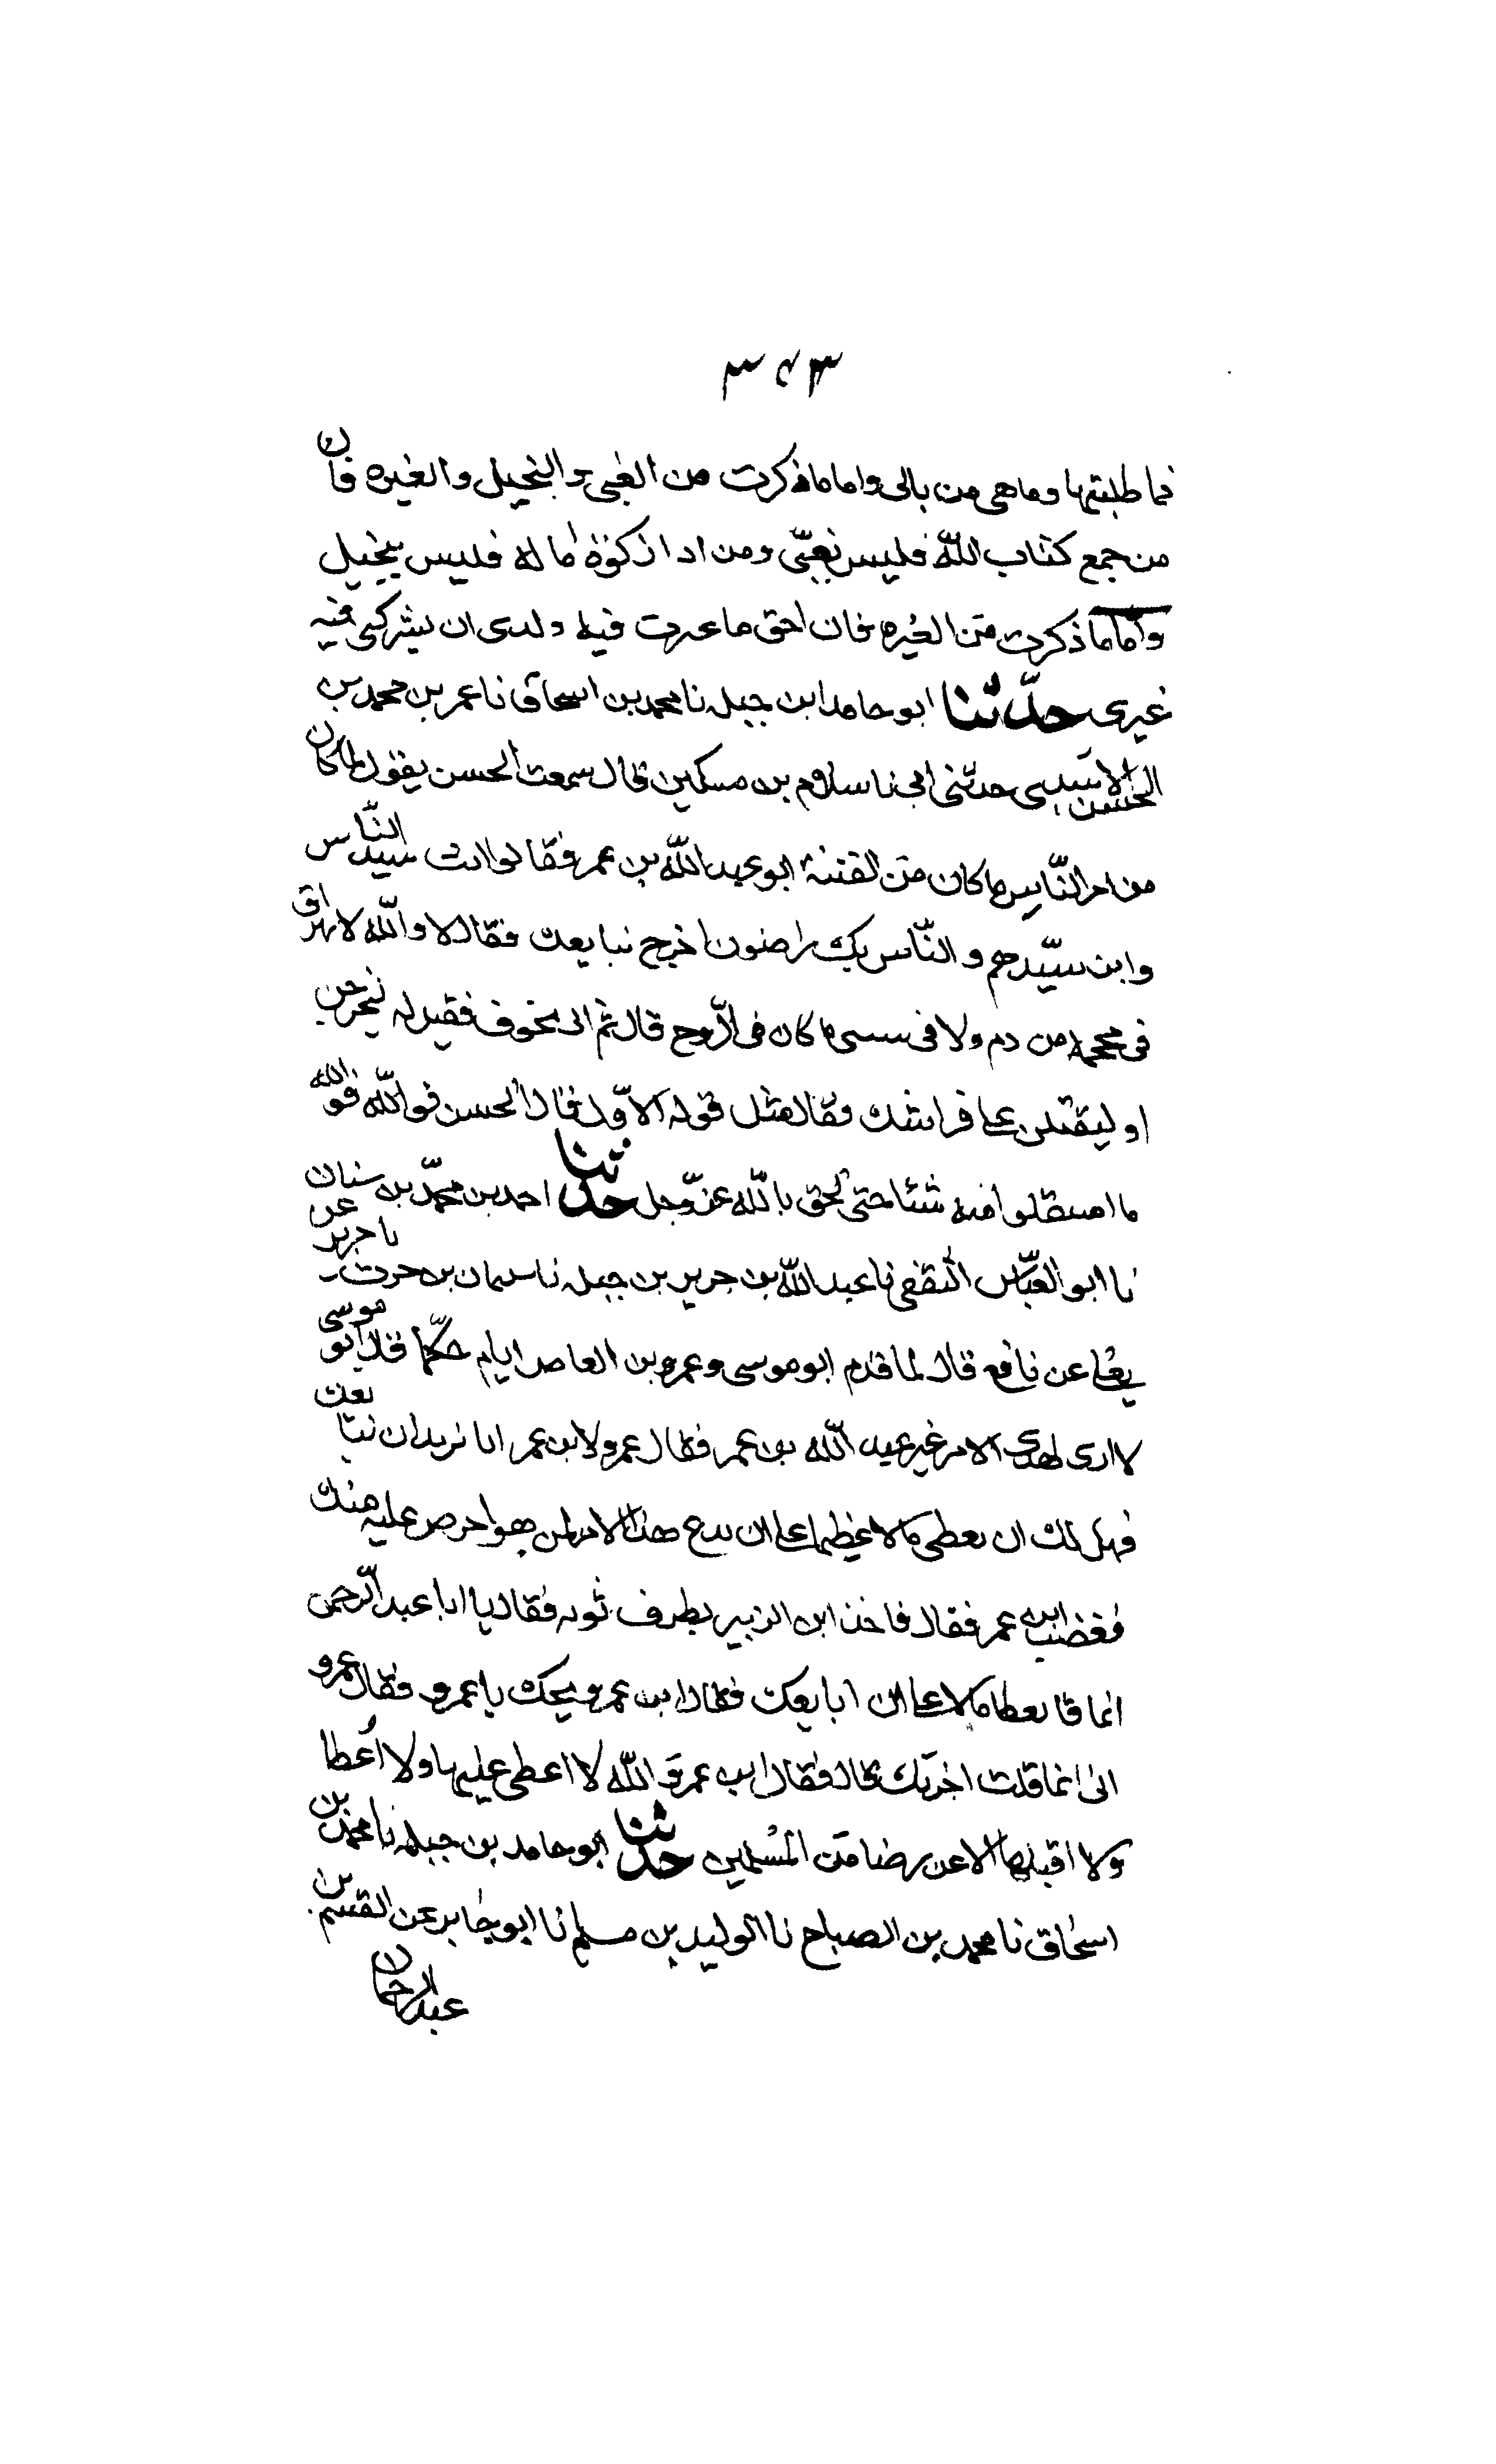 ٣٤٣
فما طلبتها وما هى من بالى واما ما ذكرت من العى والبخيل والغيره فان
من جمع كتاب الله فليس بعيّ ومن ادا زكوة ماله فليس ببخيل
وامّا ما ذكرت من الغيره فان احق ما عرت فيه ولدى ان يشركنى فيه
غيرى حدّثنا ابو حامد ابن جبله نا محمد بن اسحاق نا عمر بن محمد بن
الحسن الاسدى حدثنى ابى نا سلام بن مسكين قال سمعت الحسن يقول لما كان
من امر الناس ما كان من الفتنة ابو عبد الله بن عمر فقالوا انت سيد الناس
وابن سيّدهم والنّاس بك راضون اخرج نبايعك فقال لا والله لا يهراق
فى محجمة من دم ولا فى سببى ما كان فى الرّوح قال ثم اتى بخوف فقيل له لتخرجن
او ليقتلن على فراشك فقال مثل قوله الاوّل قال الحسن فوالله فوالله
ما استقلوا منه شئا حتى لحق بالله عزّ وجل حدثنا احمد بن محمّد بن سنان
نا ابو العبّاس الثقفى نا عبد الله بن جرير بن جبله نا سليمان بن حرب نا جرير عن
يعلى عن نافع قال لما قدم ابو موسى وعمرو بن العاص ايام حكّما قال ابو موسى
لا ارى لهذى الامر غير عبد الله بن عمر فقال عمرو لابن عمر انا نريد ان نبايعك
فهل لك ان تعطى مالا عظيما على ان تدع هذا الامر لمن هو احرص عليه منك
فغضب ابن عمر فقال فاخذ ابن الزبير بطرف ثوبه فقال يا ابا عبد الرّحمن
انما قا تعطا مالا على ان ابايعك فقال ابن عمر ويحك يا عمرو فقال عمرو
انى انما قلت اجربك قال فقال ابن عمر والله لا اعطى عليها ولا اُعطا
ولا اقبلها الا عن رضا من المسلمين حدثنا ابو حامد بن جبله نا محمد بن
اسحاق نا محمد بن الصباح نا الوليد بن مسلم نا ابو جابر عن القسم بن
عبد الرحمان